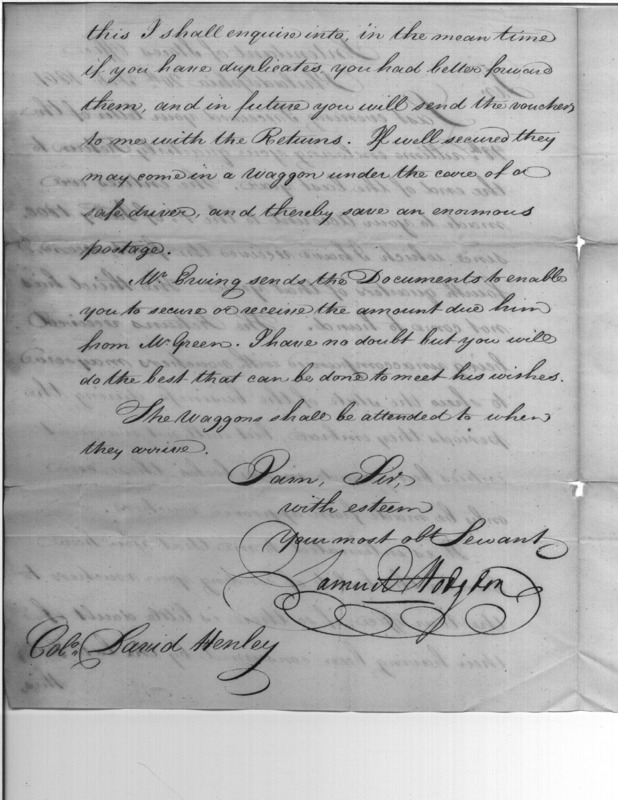 this I shall enquire into, in the mean time
if you have duplicates, you had better forward
them, and in future you will send the vouchers
to me with the Returns. If well secured they
may come in a waggon under the care of a
safe driver, and thereby save an enormous
postage.
Mr. Erving sends the Documents to enable
you to secure or receive the amount due him
from Mr Green. I have no doubt but you will
do the best that can be done to meet his wishes.
The Waggons shall be attended to when
they arrive.
I am, Sir,
with esteem
Your most obt Servant
Samuel Hodgdon
Colo. David Henley